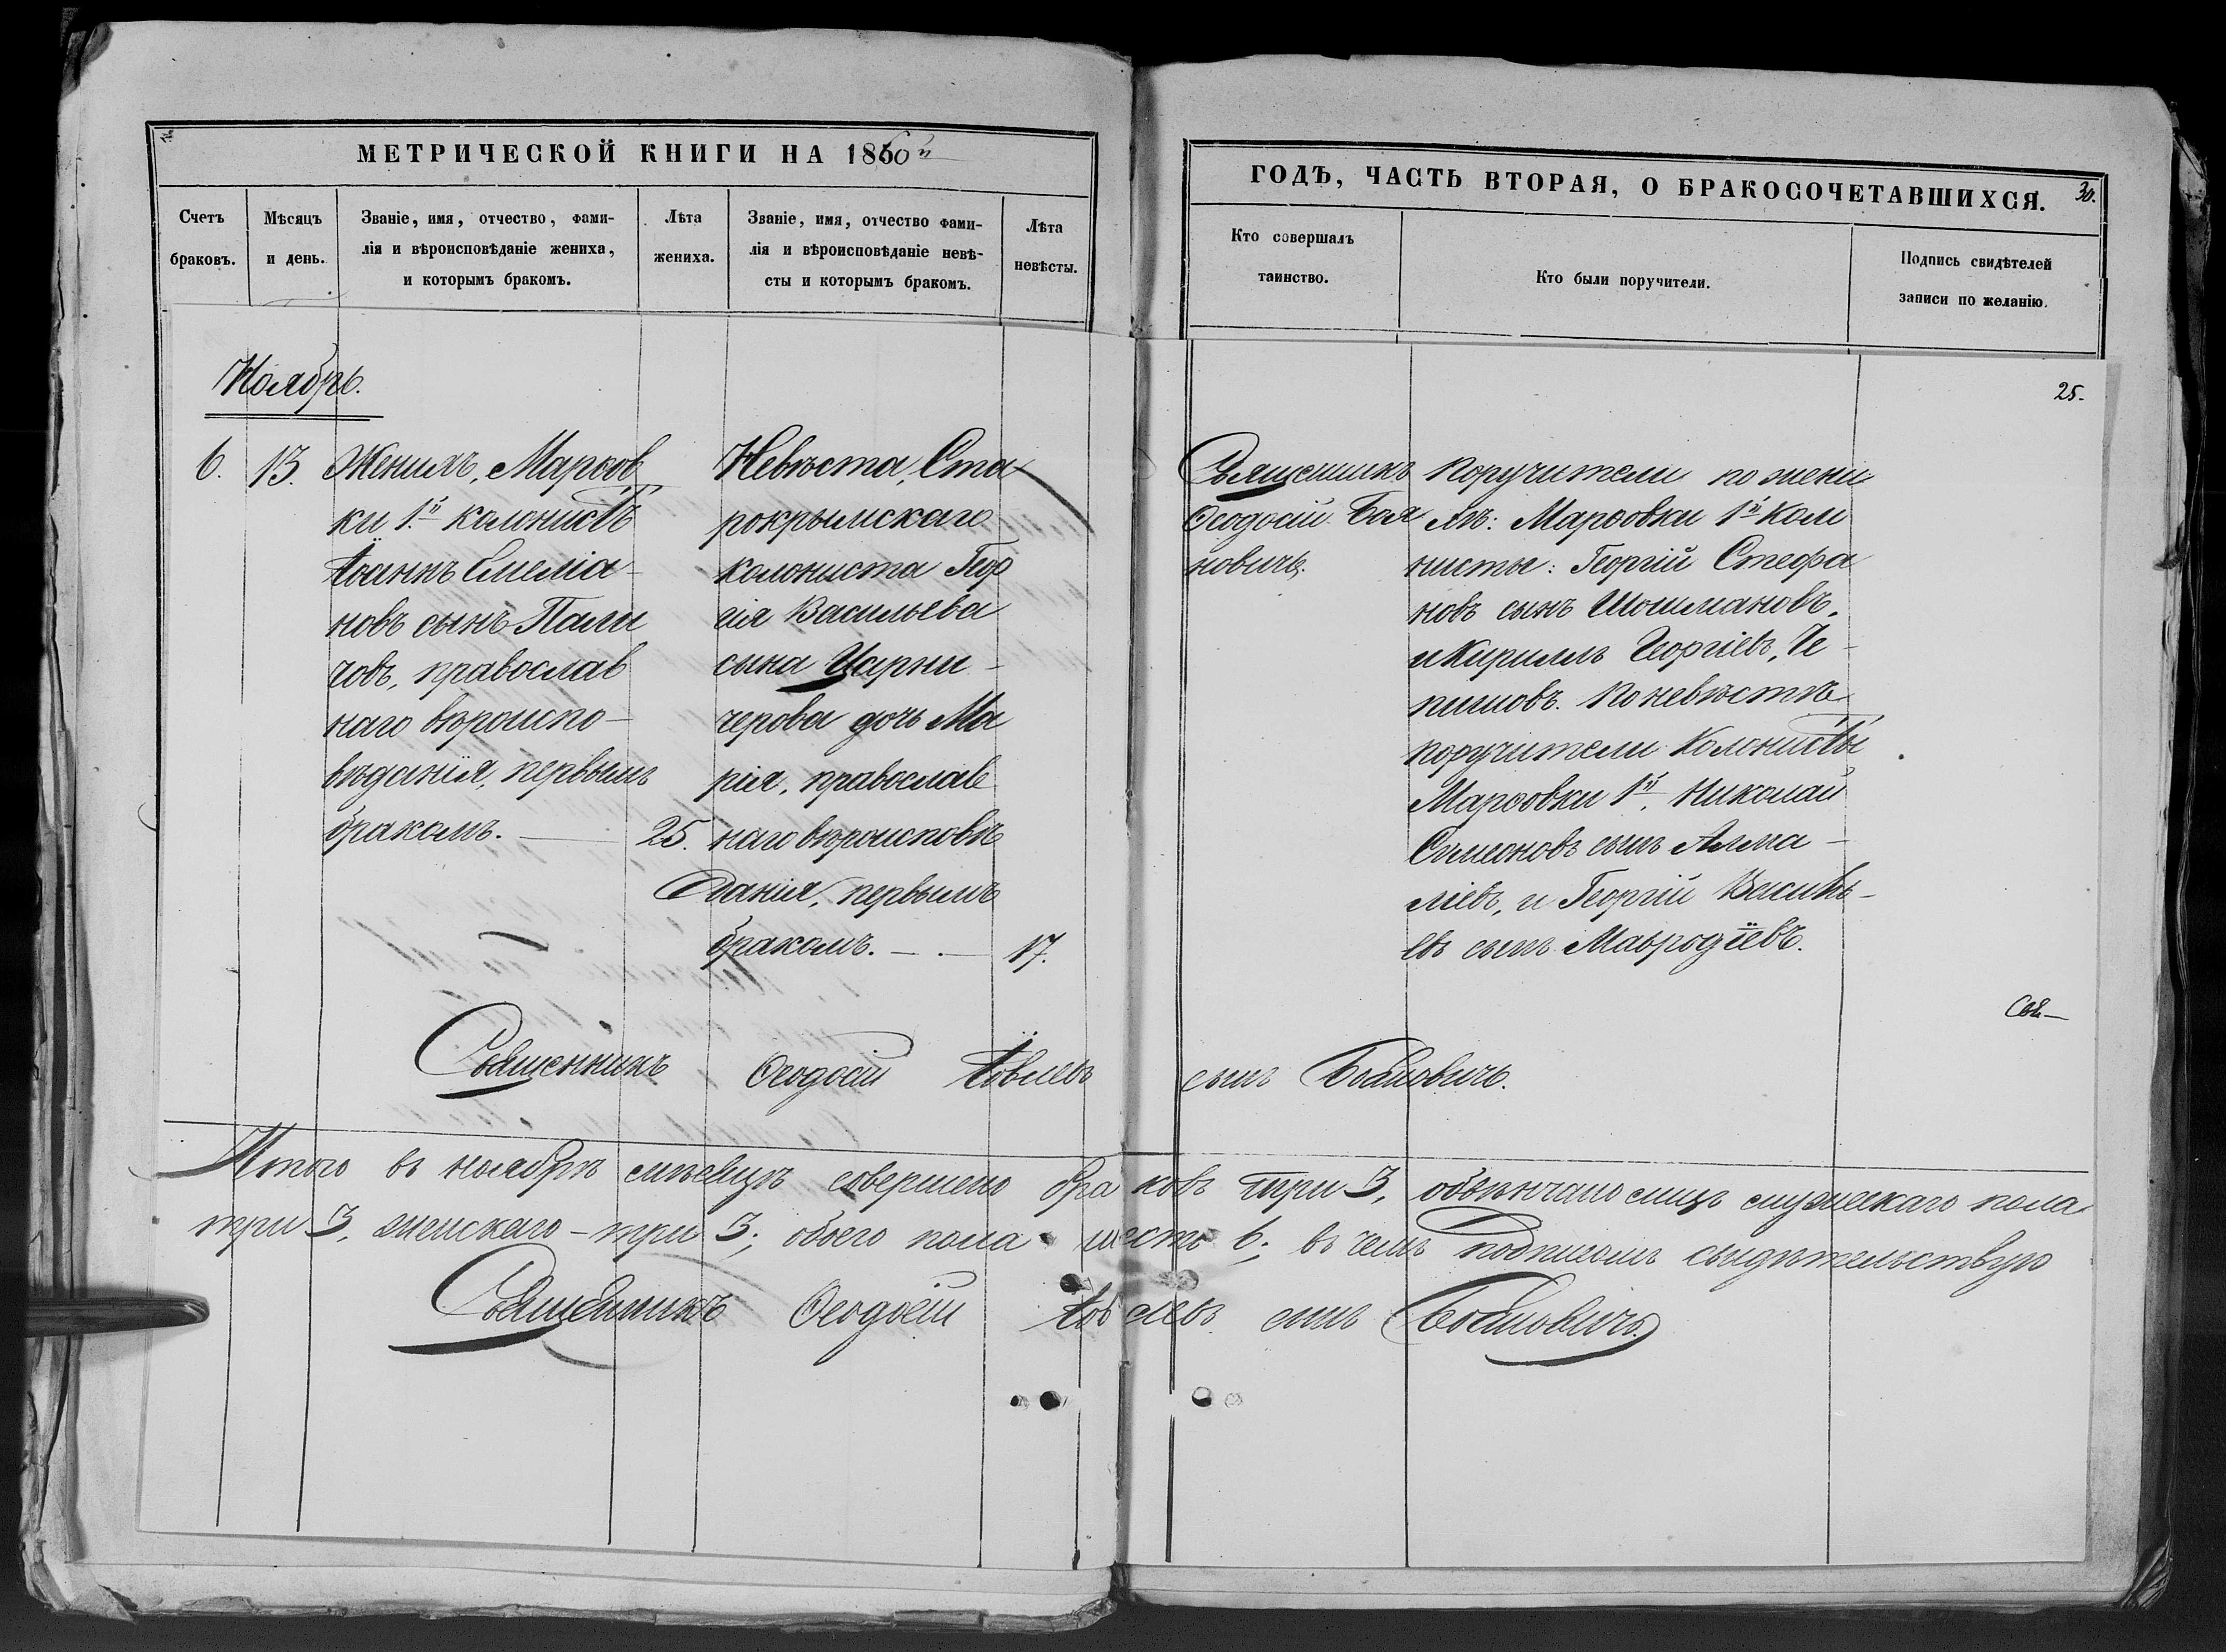 МЕТРИЧЕСКОЙ КНИГИ НА 1860й
ГОДѢ, ЧАСТЬ ВТОРАЯ, О БРАКОСОЧЕТАВШИХСЯ. 30.
Счетъ
браковъ.
Мѣсяцъ
и день.
Званіе, имя, отчество, фами-
лія и вѣроисповѣданіе жениха,
и которымъ бракомъ.
Лѣта
жениха.
Званіе, имя, отчество фами-
лія и вѣроисповѣданіе невѣ-
сты и которымъ бракомъ.
Лѣта
невѣсты.
Кто совершалъ
таинство.
Кто были поручители.
Подпись свидѣтелей
записи по желанію.
25.
Ноябрь.
6.
13.
Женихъ, Марфов
ки 1й колонистъ
Іоаннъ Емелiа-
новъ сынъ Пали
човъ, православ
наго вѣроиспо-
вѣданія, первымъ
бракомъ. — 25.
Невѣста, Ста
рокрымскаго
колониста Геор
гія Васильева
сына
черова дочь Ма
рія, православ
наго вѣроисповѣ
данія, первымъ
бракомъ. — 17.
Священникъ
Ѳеодосій Боя
новичъ.
Поручители по жени
хѣ: Марфовки 1й Коло
нисты: Георгій Стефа
новъ сынъ Шошмановъ,
и Кириллъ Георгіевъ, Че-
пишовъ. По невѣстѣ
поручители Колонисты
Марфовки 1й, Николай
Симеоновъ сынъ Алма-
ліевъ, и Георгій Василь-
евъ сынъ Мавродіевъ.
Свя—
Священникъ Ѳеодосій Іовлевъ сынъ Бояновичъ.
Итого въ ноябрѣ мѣсяцѣ совершено браковъ три 3, обвѣнчано лицъ мужескаго пола
три 3, женскаго - три 3; обоего пола шесть 6; въ чемъ подписомъ свидѣтельствую
Священникъ Ѳеодосій Іовлевъ сынъ Бояновичъ.